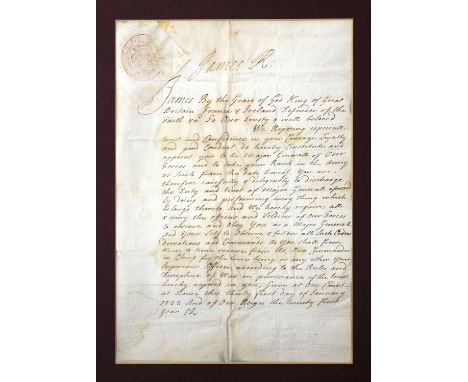 James R
James By the Grace of God King of Great
Britain France & Ireland Defender of the
Faith &c To Our trusty & well beloved
We Reposing especiall
trust and Confidence in your Courage Loyalty
and good Conduct do hereby Constitute and
appoint you to be Major Generall of Our
Forces and to take your Rank in the Army
as such from the date hereof. You are
therefore carefully & diligently to discharge
the Duty and trust of Major Generall aforesaid
by doing and performing every thing which
belongs thereto And We hereby require all
& every the officers and Soldiers of Our Forces
to observe and obey You as a Major Generall
and Your Self to observe & follow all Such Orders
Directions and Commands As You shall from
time to time receive from Us, Our Commander
in Chief for the time being or any other Your
Superiour Officer, according to the Rules and
Discipline of War in pursuance of the trust
hereby reposed in you. Given at Our Court
at Rome this thirty first day of January
1722 And of Our Reign the twenty First
Year